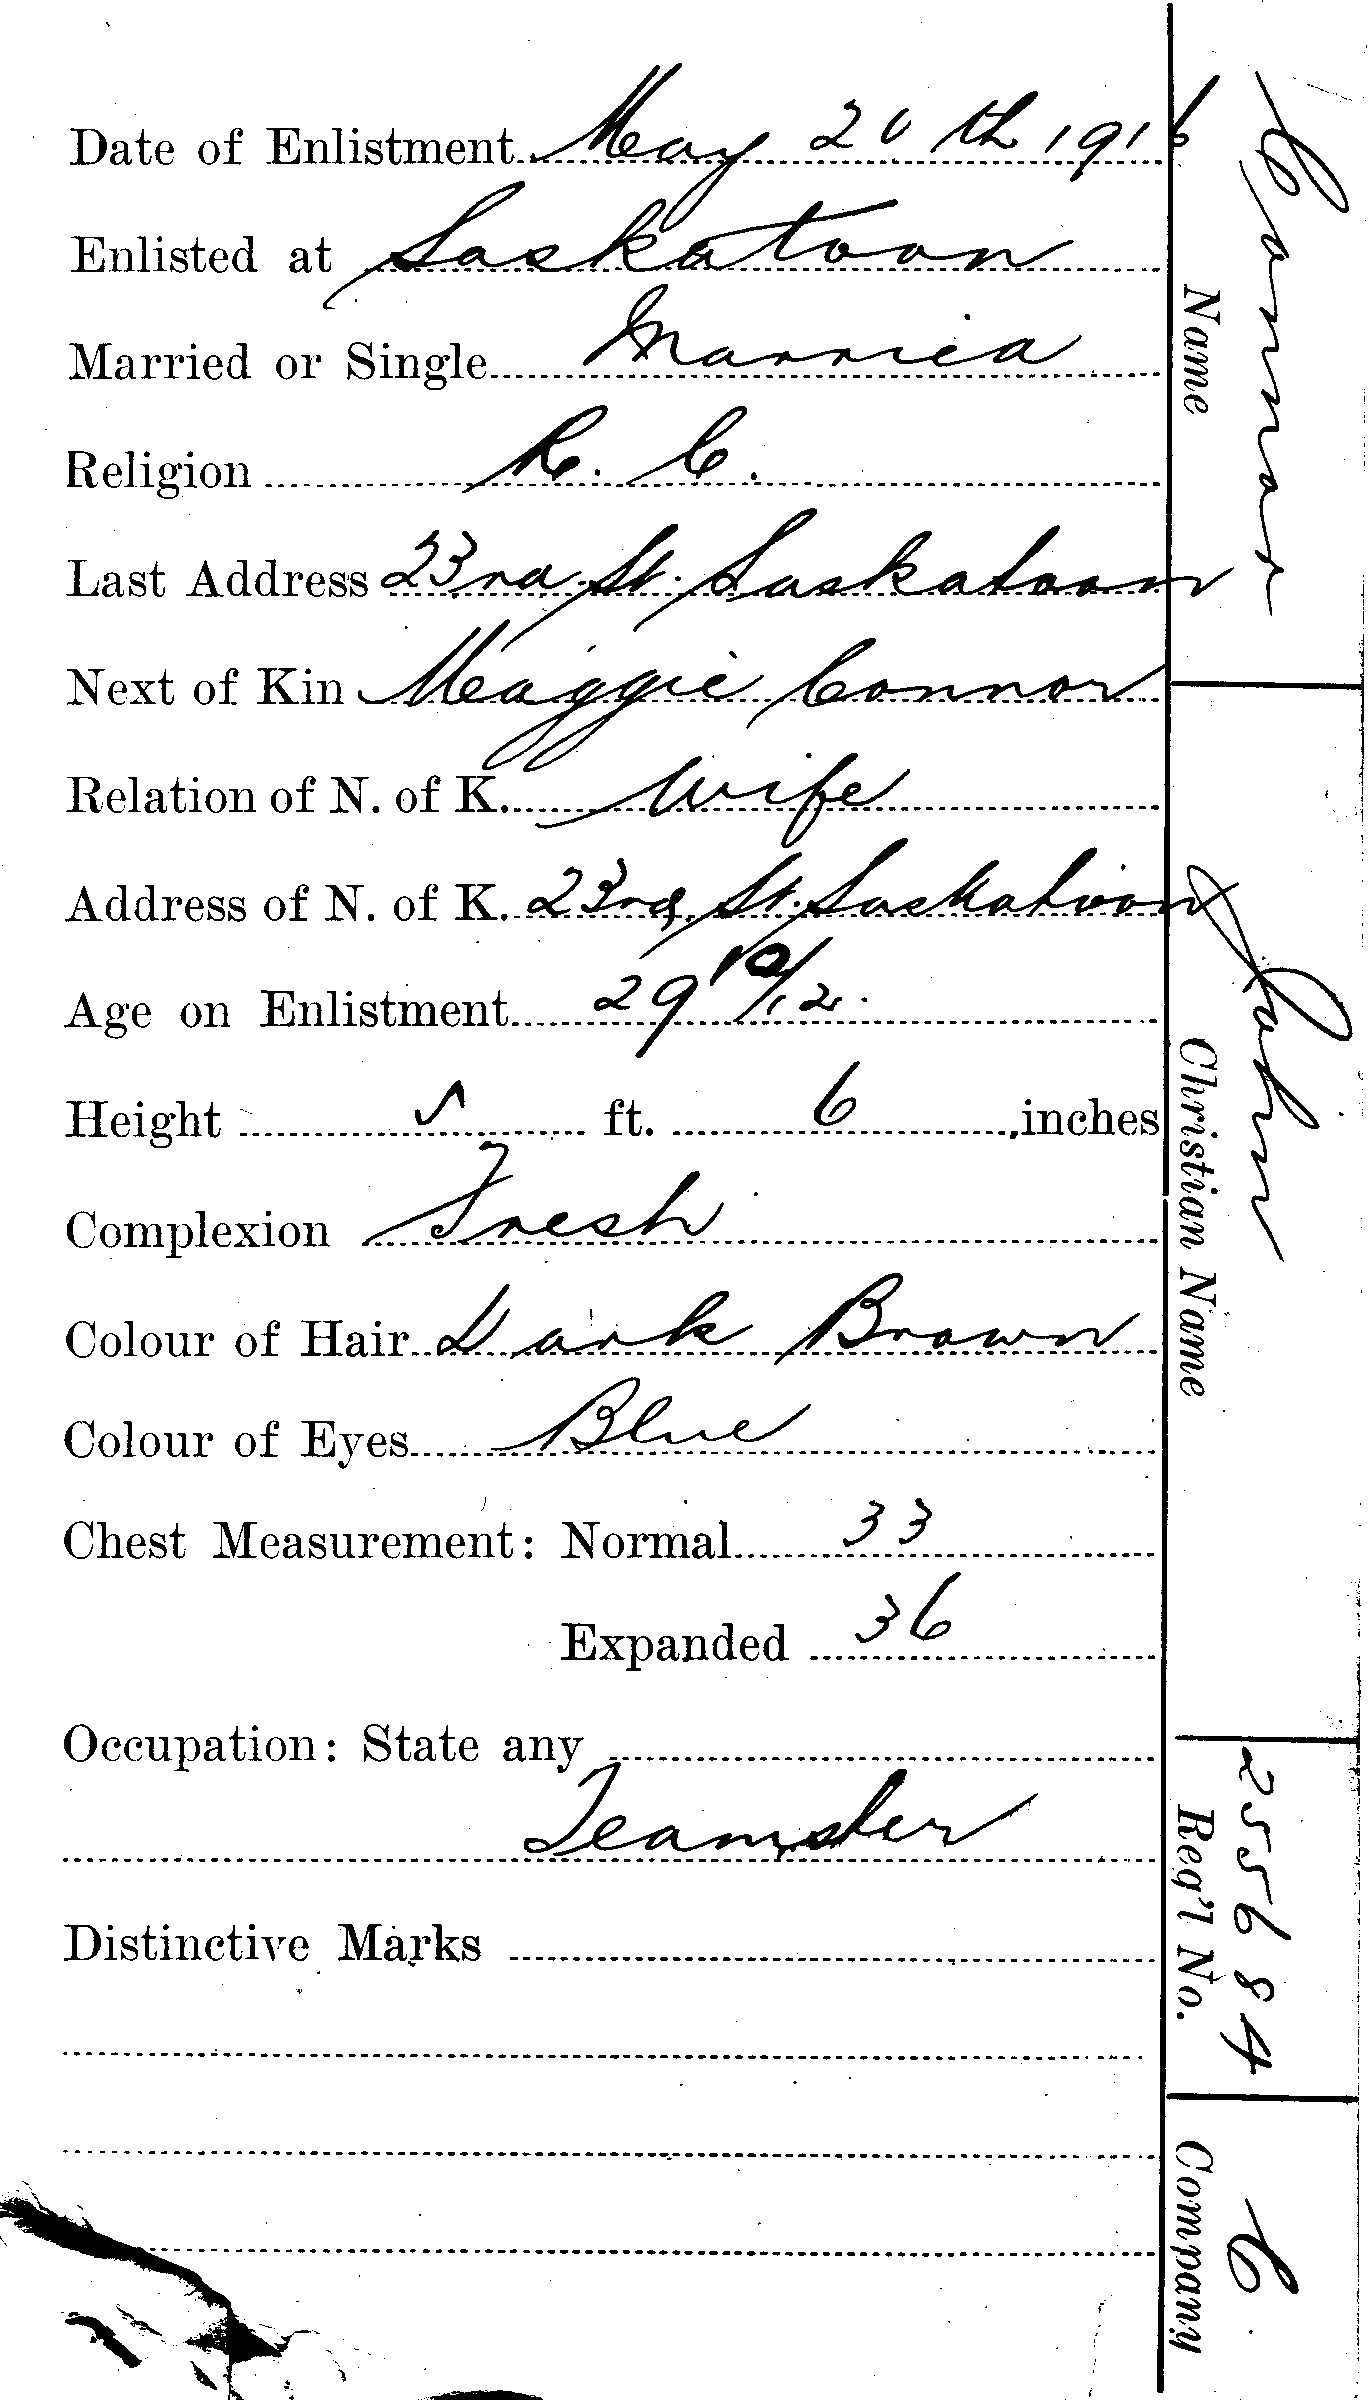 Date of Enlistment May 20th 1916
Enlisted at Saskatoon
Married or Single Married
Religion R. C.
Last Address 23rd St. Saskatoon
Next of Kin Maggie Connor
Relation of N. of K. Wife
Address of N. of K. 23rd St. Saskatoon
Age on Enlistment 29 10/12.
Height 5 ft. 6 inches
Complexion Fresh
Colour of Hair Dark Brown
Colour of Eyes Blue
Chest Measurement: Normal 33
Expanded 36
Occupation: State any
Teamster
Distinctive Marks
Connor
Name
John
Christian Name
255684
Reg'l No.
C.
Company